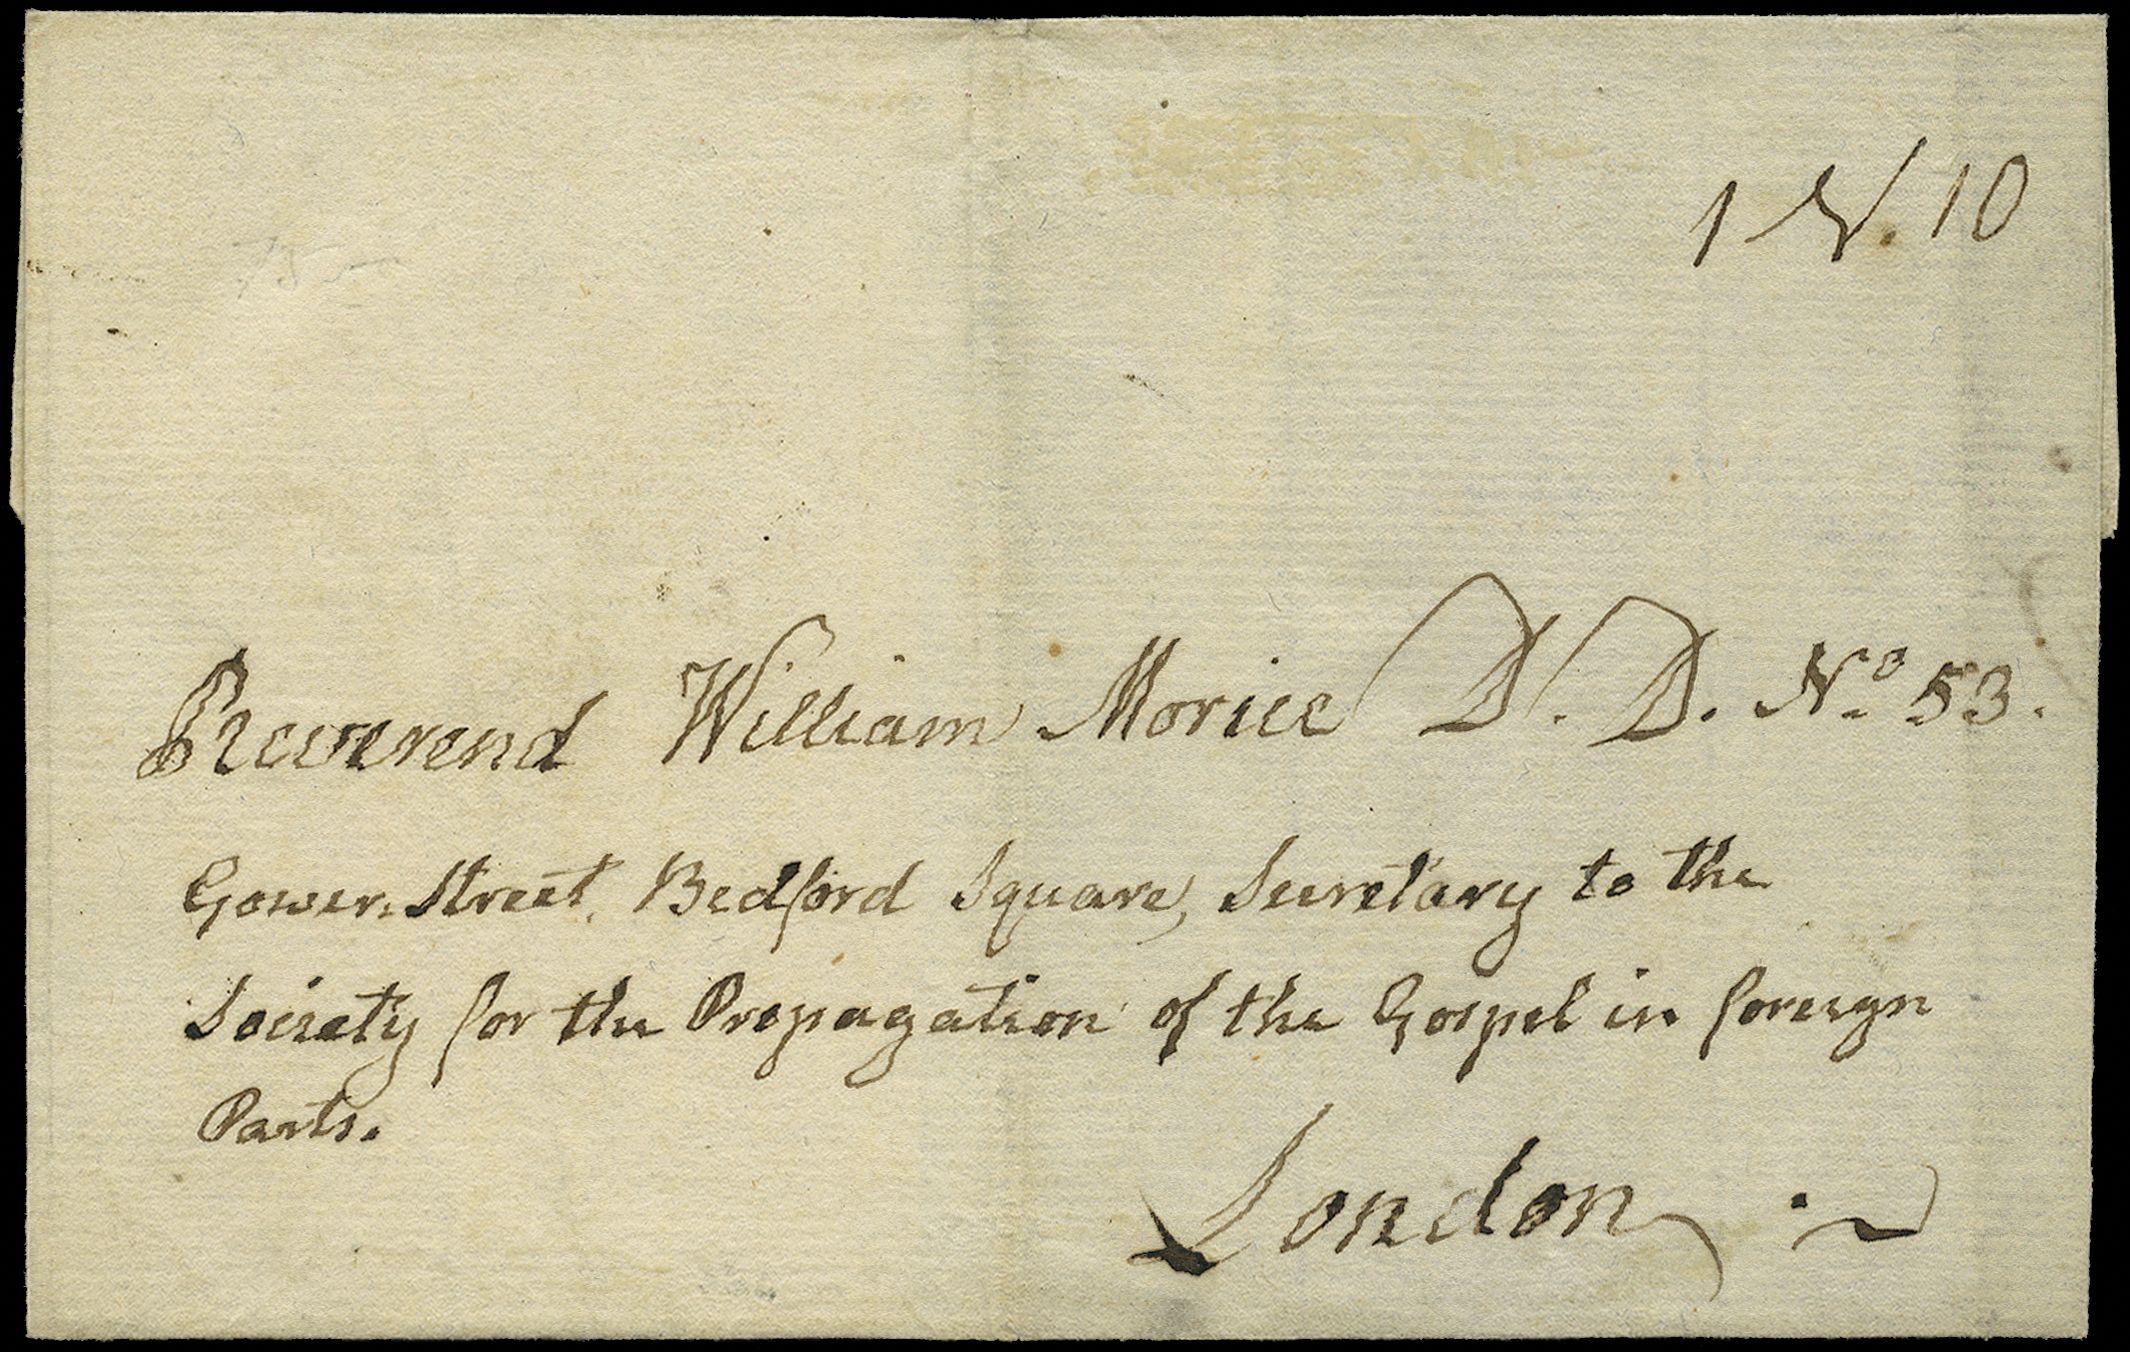 1 N. 10
Reverend William Morice D. D. Nº 53.
Gower Street, Bedford Square, Secretary to the
Society for the Propagation of the Gospel in foreign
Parts.
London